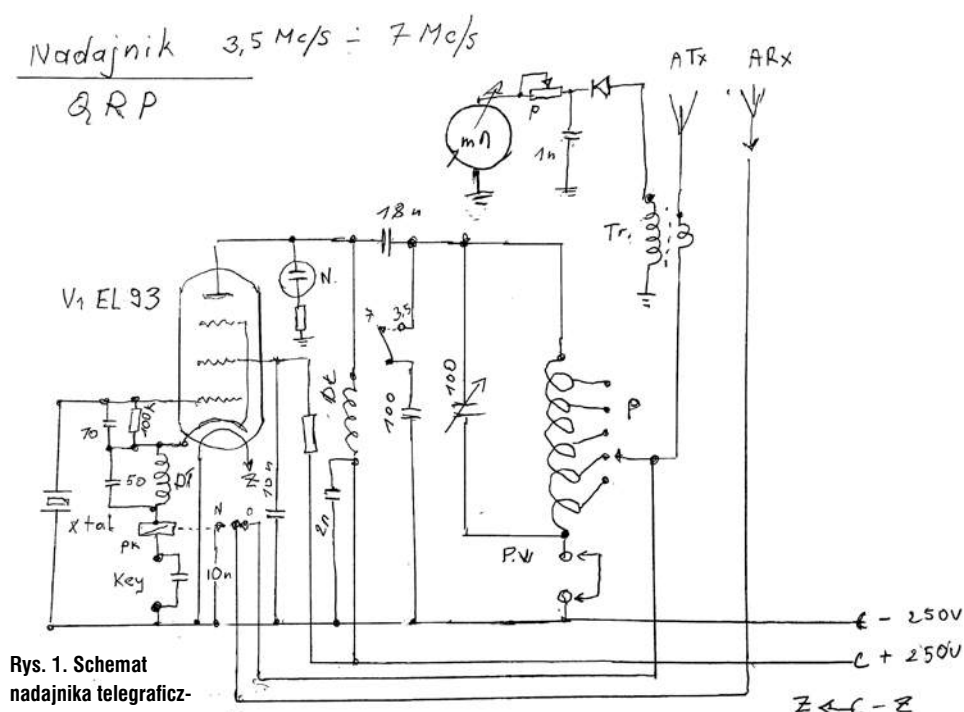 Nadajnik 3,5 Mc/s ÷ 7 Mc/s
QRP
ATx ARx
P
mA
1n
Tr.
18n
N.
V1 EL93
7 3,5
Dł
100
100
P
100k
10
50
Dł
Z
10n
2n
xtal
PK
N O
P.W
Key
10n
- 250V
+ 250V
Rys. 1. Schemat
nadajnika telegraficz-
Z - Z